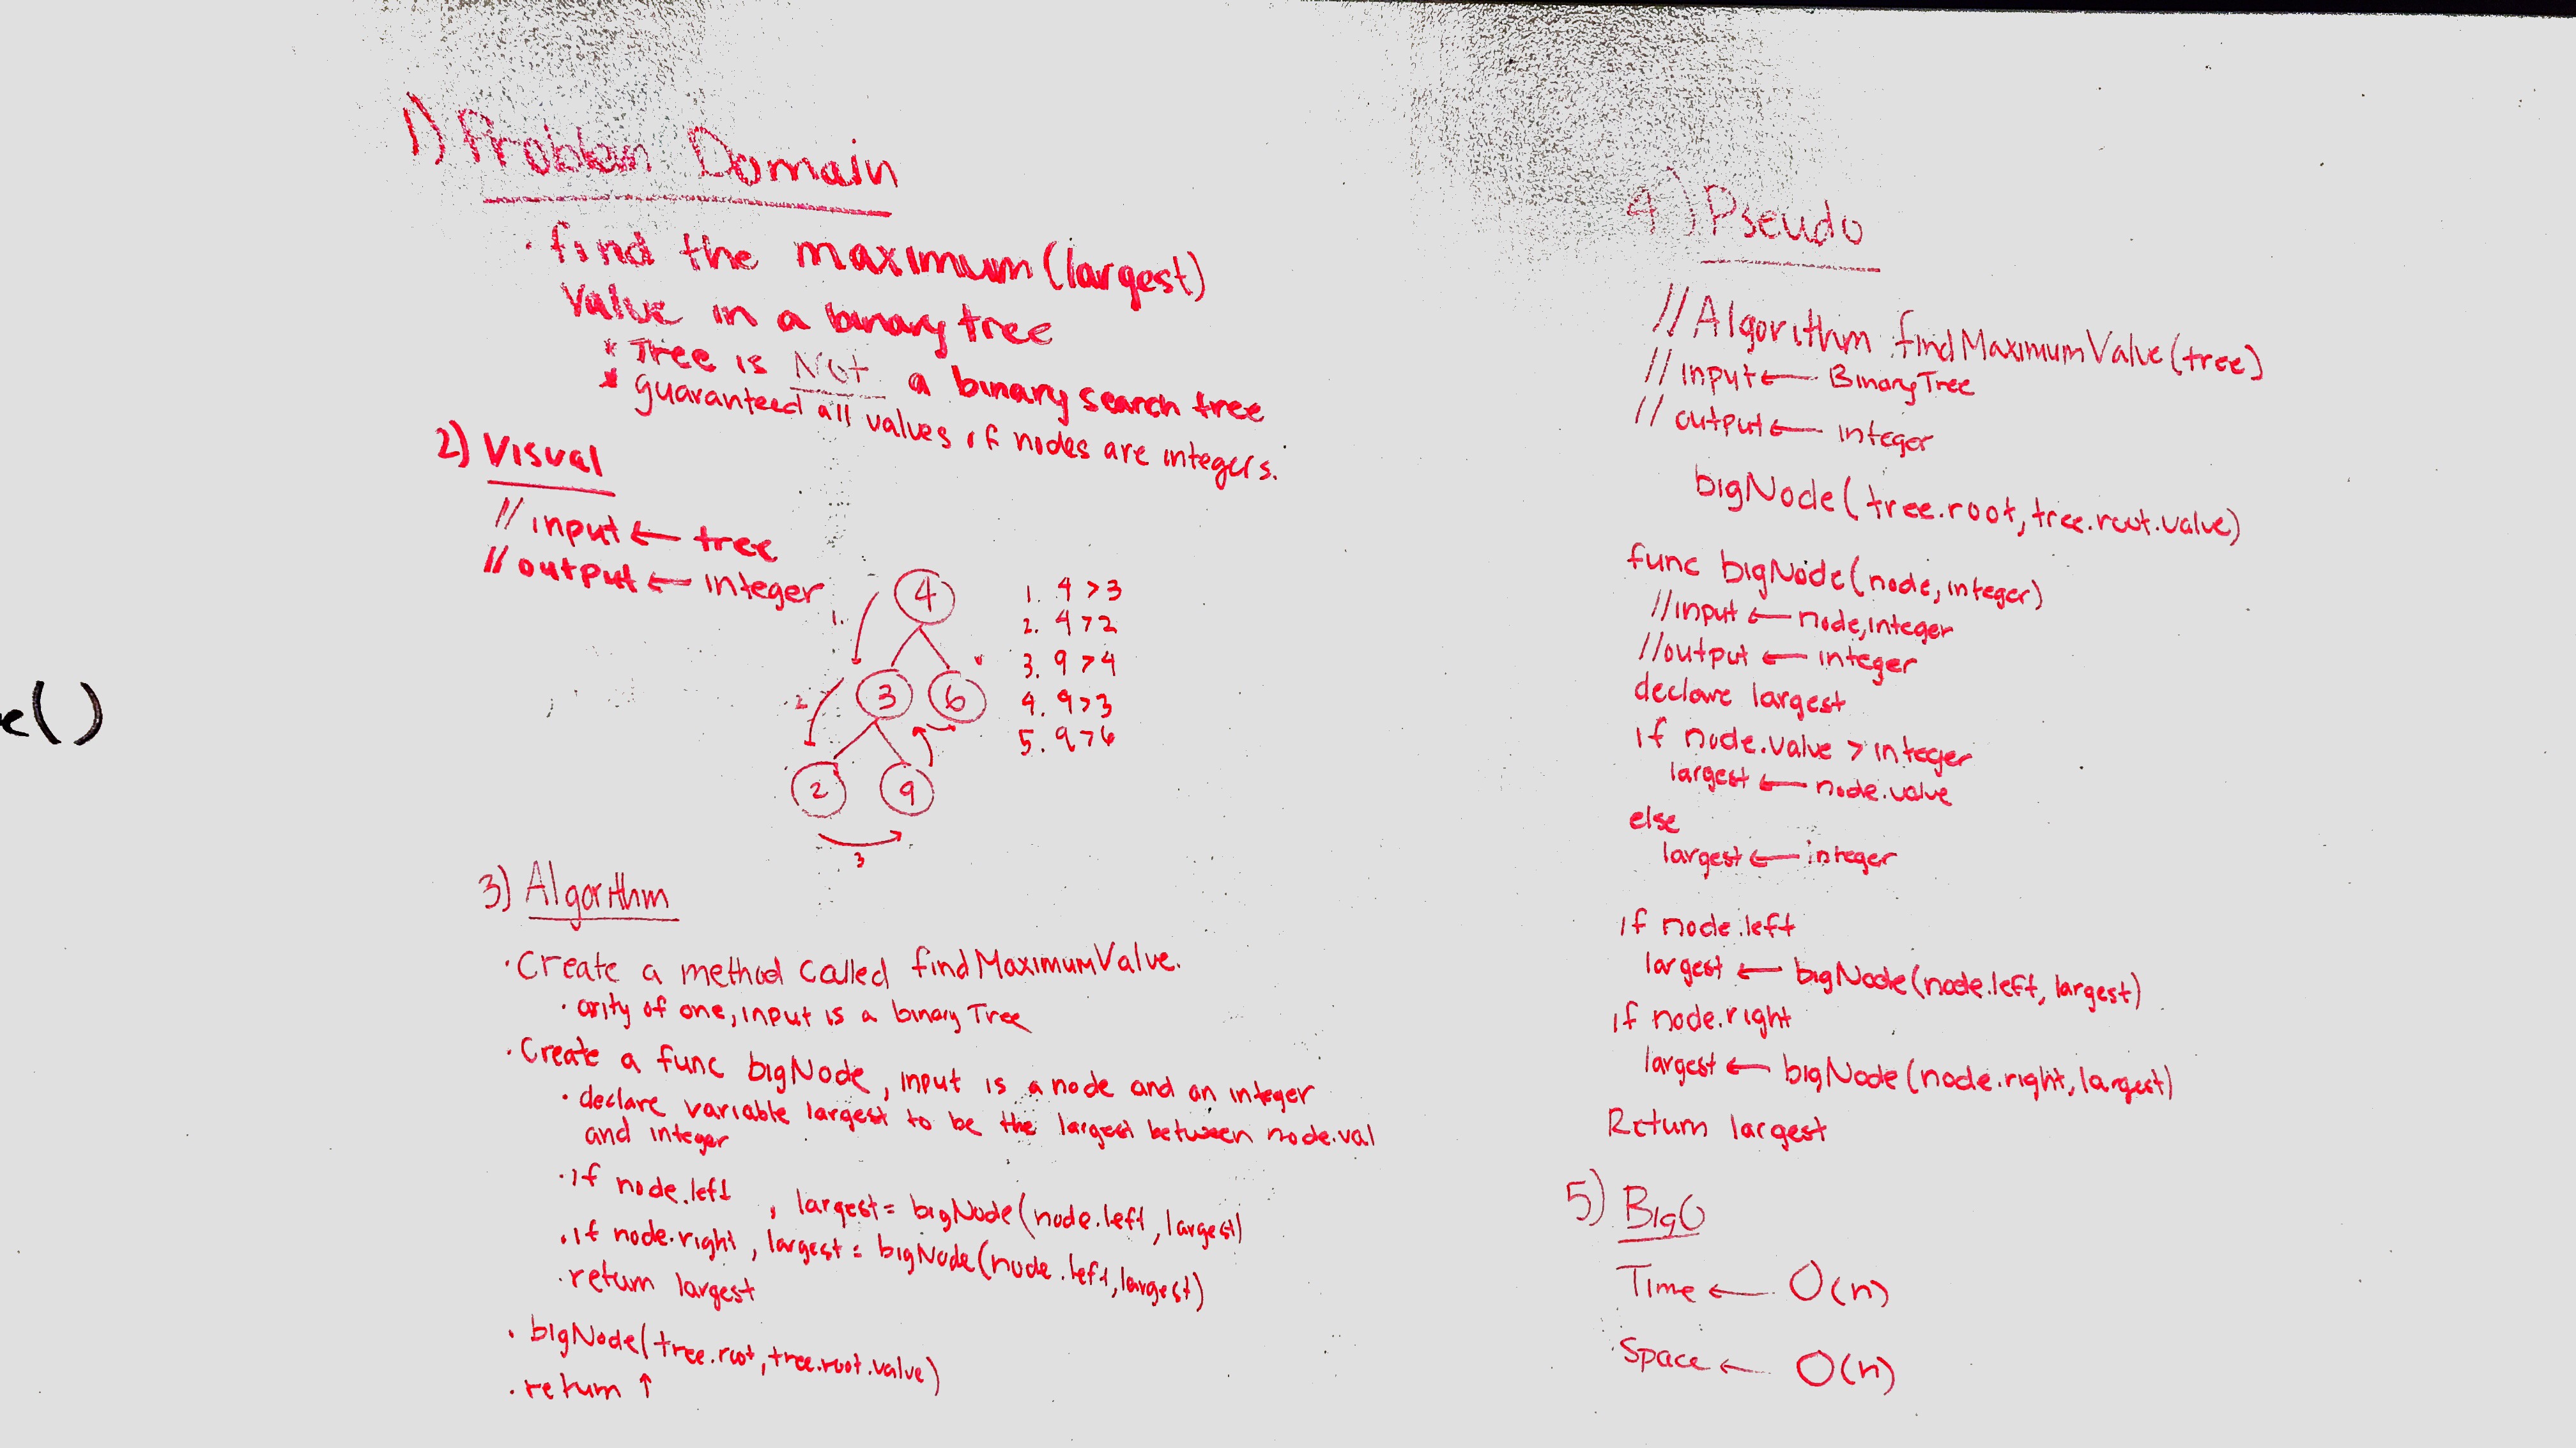 1) Problem Domain
· find the maximum (largest)
Value in a binary tree
* Tree is Not a binary search tree
* guaranteed all values of nodes are integers.
2) Visual
// input ← tree
// output ← integer
4
3 6
2 9
1.
2
3
1. 4 > 3
2. 4 > 2
3. 9 > 4
4. 9 > 3
5. 9 > 6
3) Algorithm
· Create a method called findMaximumValue.
· arity of one, input is a binary Tree
· Create a func bigNode, input is a node and an integer
· declare variable largest to be the largest between node.val
and integer
· if node.left , largest = bigNode(node.left, largest)
· if node.right, largest = bigNode(node.left, largest)
· return largest
· bigNode(tree.root, tree.root.value)
· return ↑
e()
4) Pseudo
// Algorithm findMaximumValue(tree)
// input ← BinaryTree
// output ← integer
bigNode(tree.root, tree.root.value)
func bigNode(node, integer)
// input ← node, integer
// output ← integer
declare largest
if node.value > integer
largest ← node.value
else
largest ← integer
if node.left
largest ← bigNode(node.left, largest)
if node.right
largest ← bigNode(node.right, largest)
Return largest
5) BigO
Time ← O(n)
Space ← O(n)